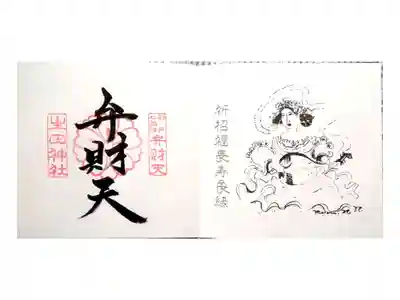 祈招福長寿良縁
弁財天
弁財天
生田神社